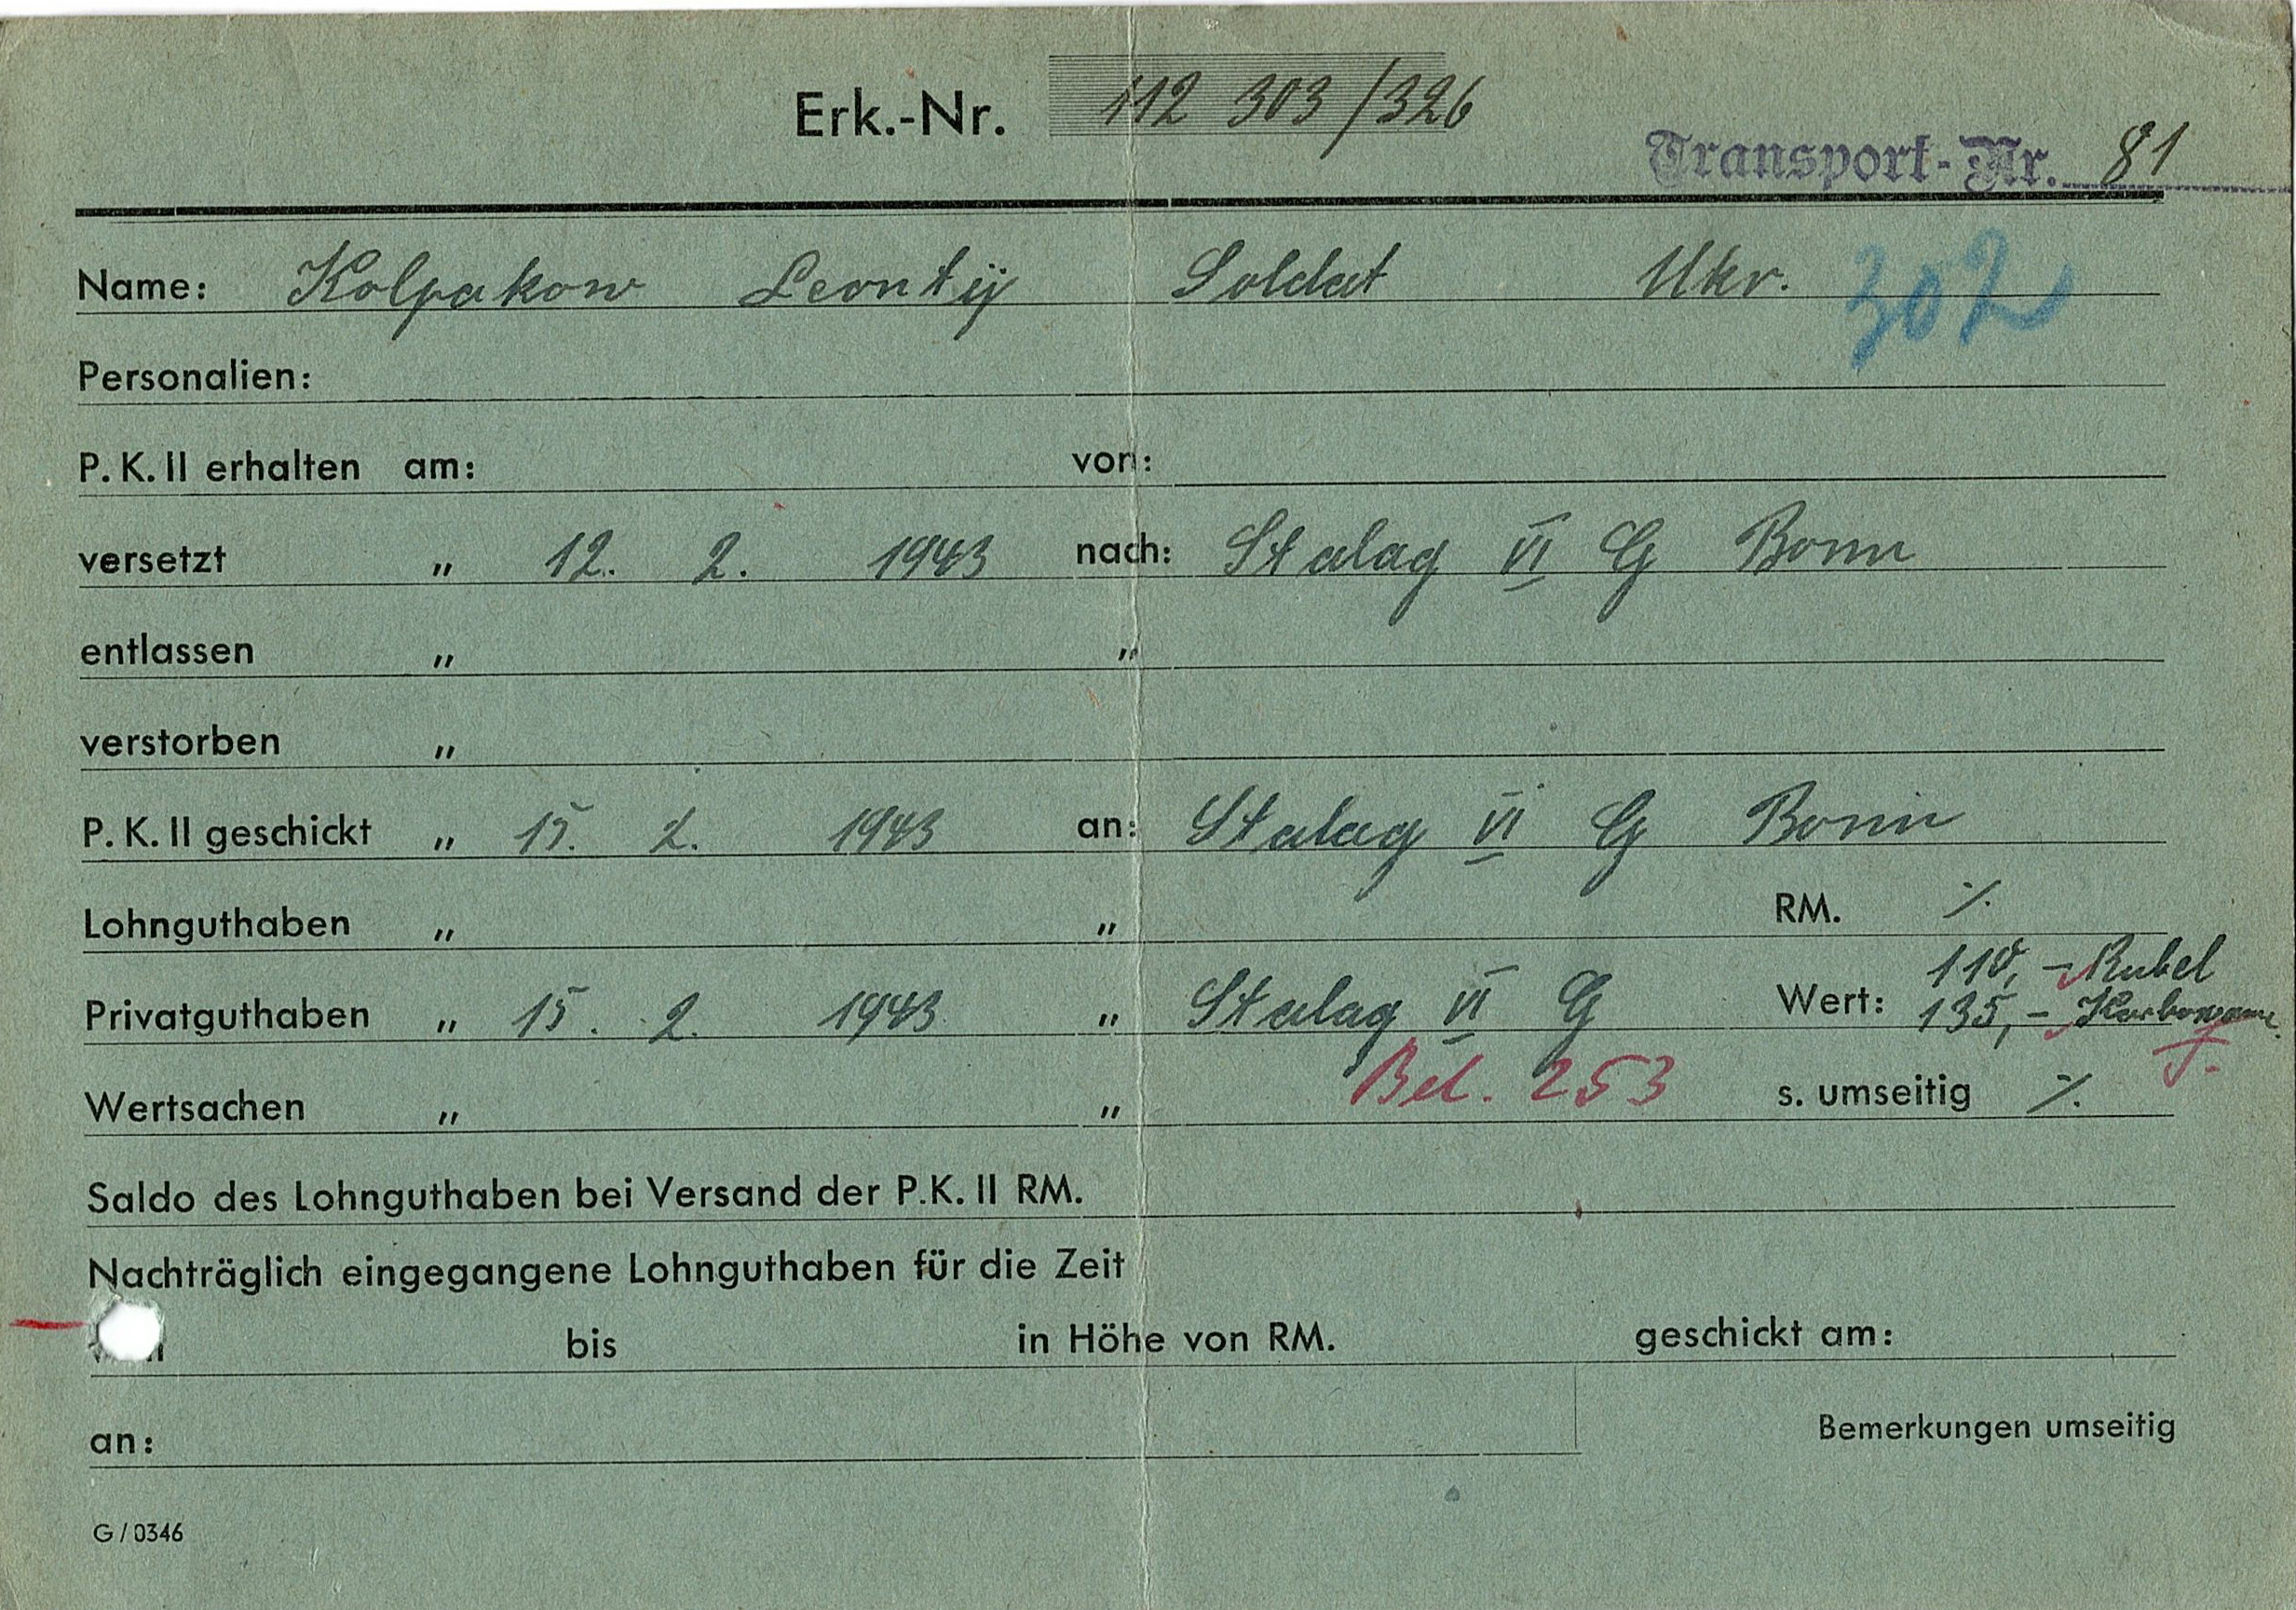 Erk.-Nr. 112 303/326
Transport-Nr. 81
Name: Kolpakow Leontij Soldat Ukr. 302
Personalien:
P. K. II erhalten am: von:
versetzt „ 12. 2. 1943 nach: Stalag VI G Bonn
entlassen „ „
verstorben „
P. K. II geschickt „ 15. 2. 1943 an: Stalag VI G Bonn
Lohnguthaben „ „ RM. ·/.
110,- Rubel
Privatguthaben „ 15. 2. 1943 „ Stalag VI G Wert: 135,- Karbowanz.
Wertsachen „ „ Bel. 253 s. umseitig ·/.
Saldo des Lohnguthaben bei Versand der P. K. II RM.
Nachträglich eingegangene Lohnguthaben für die Zeit
bis in Höhe von RM. geschickt am:
an: Bemerkungen umseitig
G / 0346